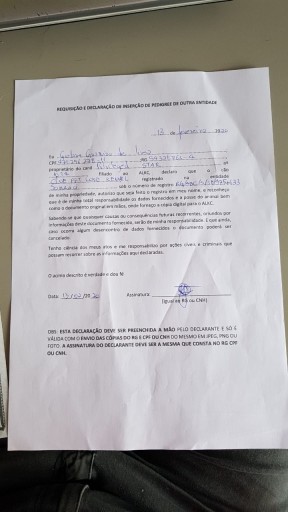 REQUISIÇÃO E DECLARAÇÃO DE INSERÇÃO DE PEDIGREE DE OUTRA ENTIDADE
13 de fevereiro 2020
Eu
CPF
proprietário do canil STAR
filiado ao ALKC, declaro que o cão
registrado na entidade
sob o número de registro
de minha propriedade, autorizo que seja feito o registro em meu nome, e reconheço
que é de minha total responsabilidade os dados fornecidos e a posse do animal bem
como o documento original em mãos, onde forneço a cópia digital para o ALKC.
Sabendo-se que quaisquer causas ou consequências futuras recorrentes, oriundos por
informações deste documento fornecido, serão de minha responsabilidade. E que ainda,
caso ocorra algum desencontro de dados fornecidos o documento poderá ser
cancelado.
Tenho ciência dos meus atos e me responsabilizo por ações cíveis e criminais que
possam resultar sobre as informações aqui declaradas.
O acima descrito é verdade e dou fé
Data: 13/02/2020 Assinatura:
(Igual ao RG ou CNH)
OBS: ESTA DECLARAÇÃO DEVE SER PREENCHIDA A MÃO PELO DECLARANTE E SÓ É
VÁLIDA COM O ENVIO DAS CÓPIAS DO RG E CPF OU CNH DO MESMO EM JPEG, PNG OU
FOTO. A ASSINATURA DO DECLARANTE DEVE SER A MESMA QUE CONSTA NO RG CPF
OU CNH.